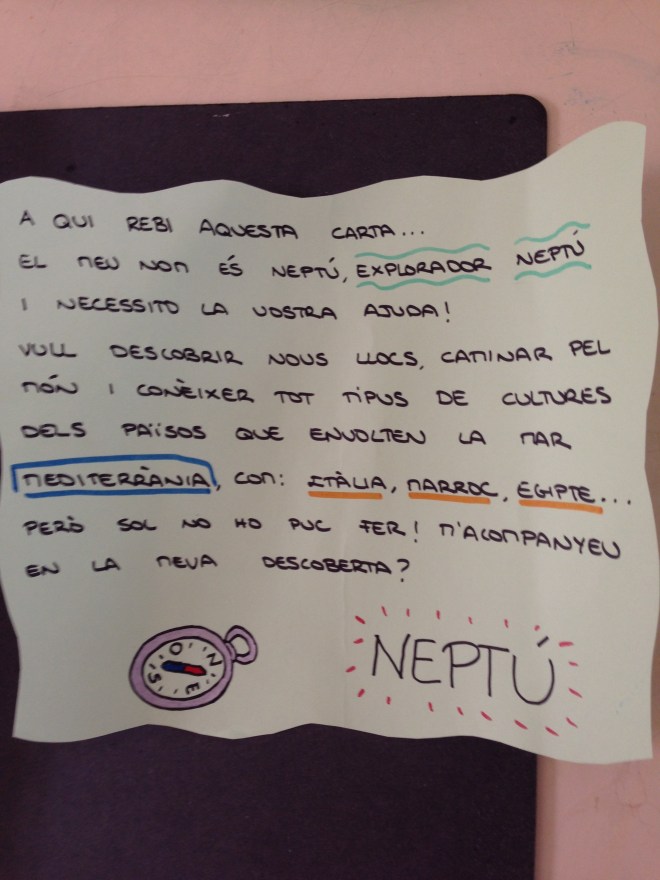 A QUI REBI AQUESTA CARTA...
EL MEU NOM ÉS NEPTÚ, EXPLORADOR NEPTÚ
I NECESSITO LA VOSTRA AJUDA!
VULL DESCOBRIR NOUS LLOCS, CAMINAR PEL
MÓN I CONÈIXER TOT TIPUS DE CULTURES
DELS PAÏSOS QUE ENVOLTEN LA MAR
MEDITERRÀNIA, COM: ITÀLIA, MARROC, EGIPTE...
PERÒ SOL NO HO PUC FER! M'ACOMPANYEU
EN LA MEVA DESCOBERTA?
N
O
E
S
NEPTÚ